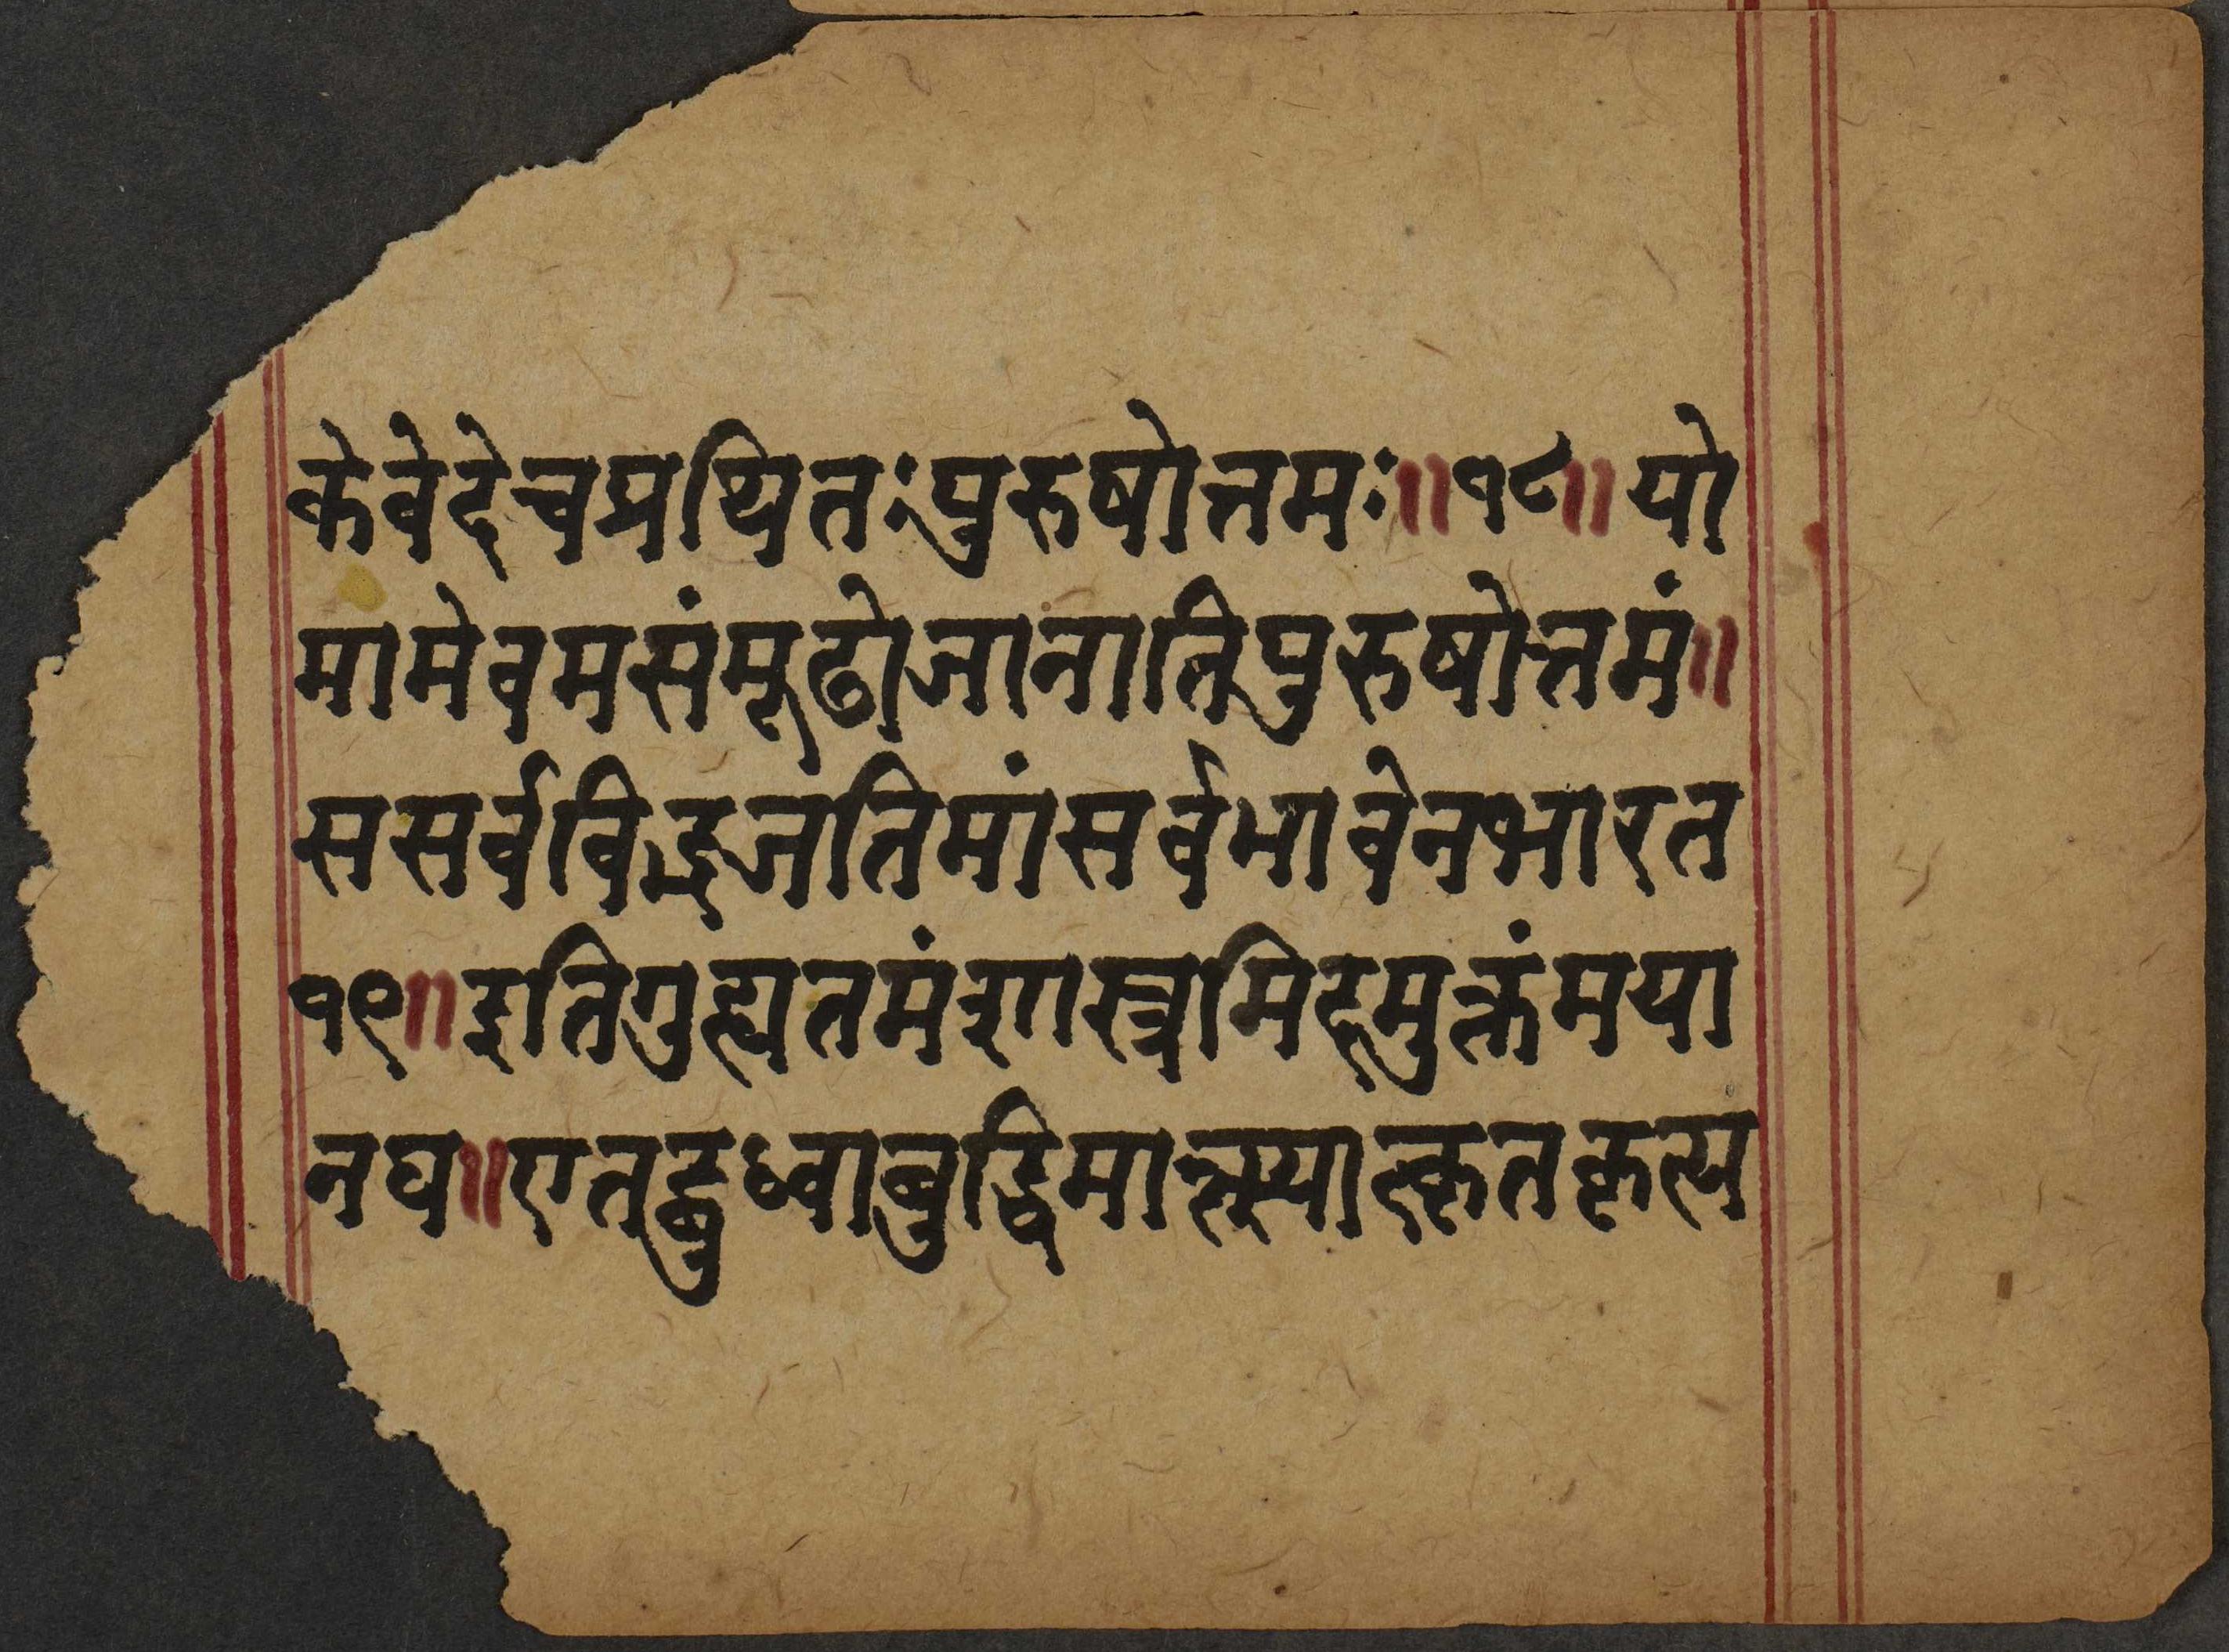 के वेदे च प्रथितः पुरुषोत्तमः॥१८॥ यो
मामेवमसंमूढो जानाति पुरुषोत्तमं॥
स सर्वविद्भजति मां सर्वभावेन भारत
१९॥ इति गुह्यतमं शास्त्रमिदमुक्तं मया
नघ॥ एतद्बुध्वा बुद्धिमान्स्यात्कृतकृत्य